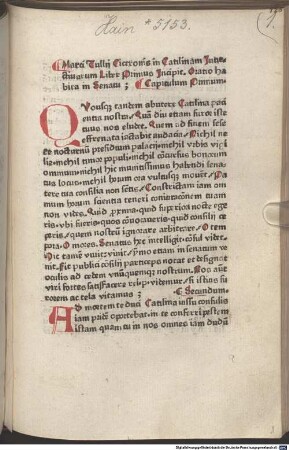 Hain * 5153.
1.
Marci Tullij Ciceronis in Catilinam Inuec
tiuarum Liber Primus Incipit. Oratio ha
bita in Senatu; Capitulum Primum.
QVousque tandem abutere Catilina paci
encia nostra. Quā diu etiam furor iste
tuus nos eludet. Quem ad finem sese
effrenata iactabit audacia. Nichil ne
te nocturnū presidium palacij. nichil vrbis vigi
lie. nichil timor populi. nichil cōcursus bonorum
omnium. nichil hic munitissimus habendi sena
tus locus. nichil horum ora vultusque mouerūt. Pa
tere tua consilia non sentis. Constrictam iam om
nium horum scientia teneri coniuracionem tuam
non vides. Quid proxima. quid superiori nocte ege
ris. vbi fueris. quos cōuocaueris. quid consilij ce
peris. quem nostrū ignorare arbitrare. O tem
pora. O mores. Senatus hec intelligit. cōsul videt.
Hic tamē viuit. viuit. ymmo etiam in senatum ve
nit. Fit publici cōsilij particeps. notat et designat
oculis ad cedem vnūquemque nostrum. Nos autē
viri fortes satisfacere reipublice videmur. si istius fu
rorem ac tela vitamus; Secundum.
AD mortem te duci Catilina iussu consulis
iam pridē oportebat. in te conferri pestem
istam quam tu in nos omnes iam dudū